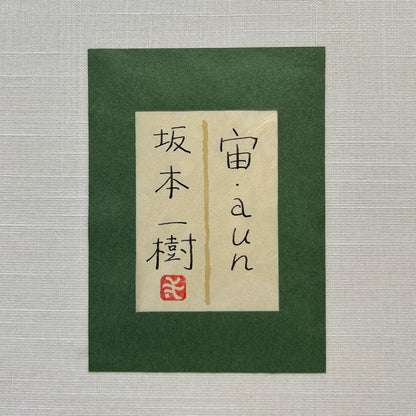 宙・aun
坂本一樹